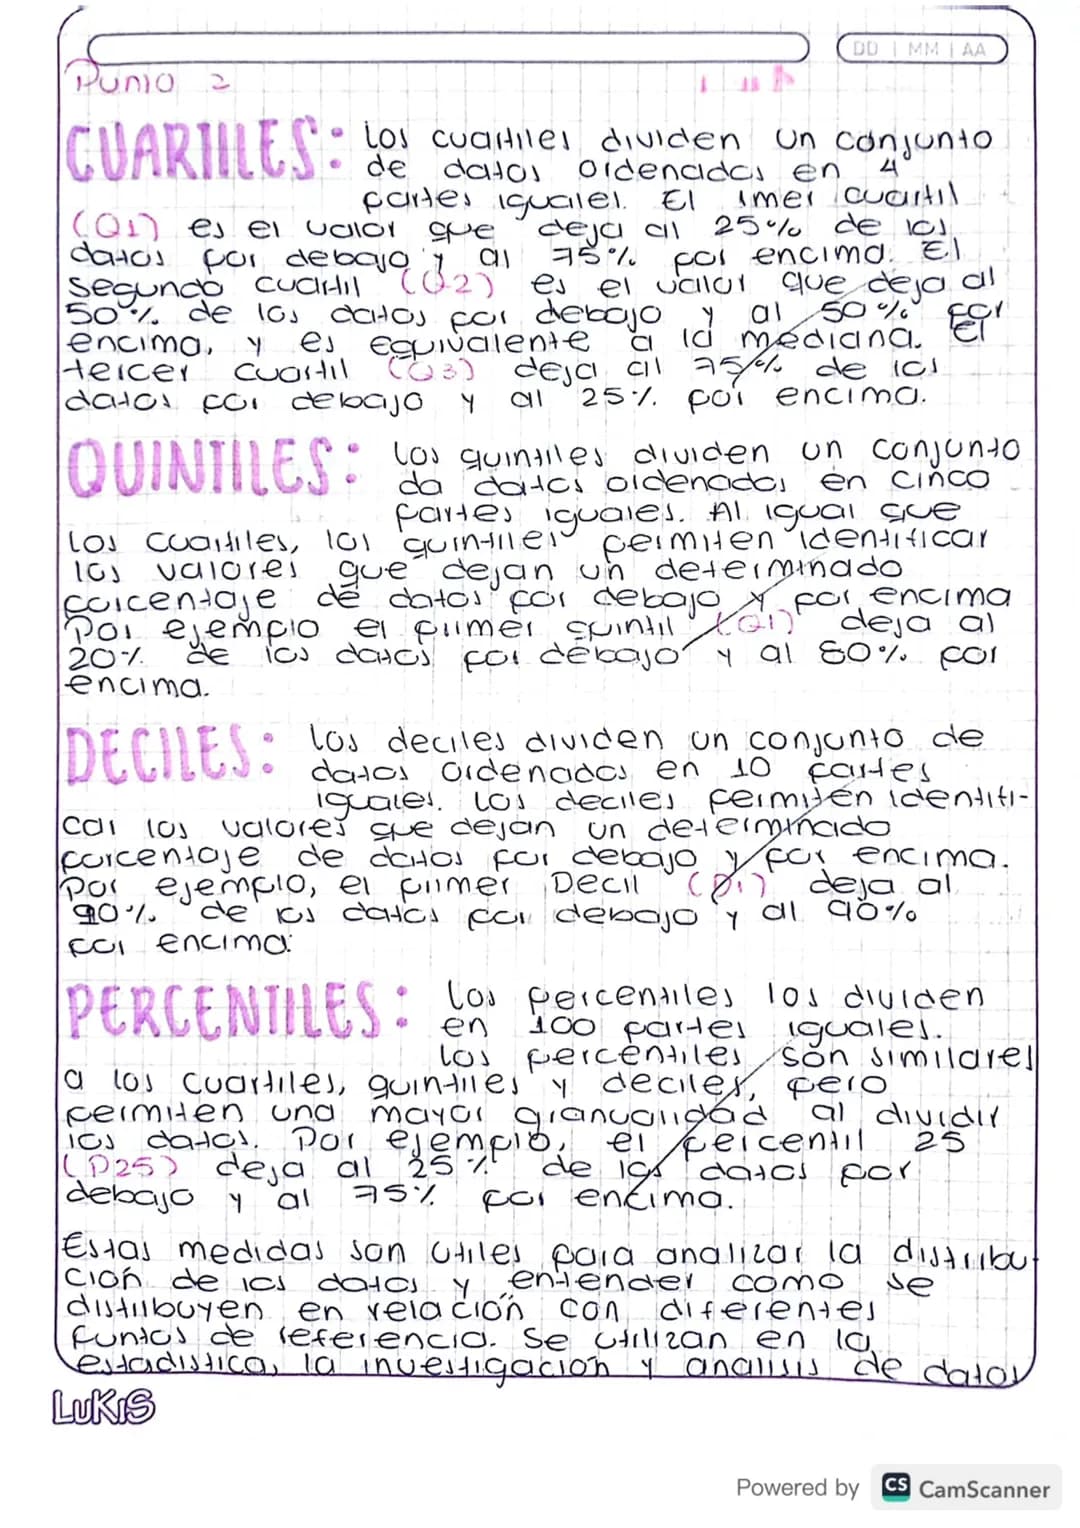 DD | MM | AA
Punto 2
CUARTILES: Los cuartiles dividen un conjunto
de datos ordenados en 4
partes iguales. El 1mer cuartil
(Q1) es el valor que deja al 25% de los
datos por debajo y al 75% por encima. El
segundo cuartil (Q2) es el valor que deja al
50% de los datos por debajo y al 50% por
encima, y es equivalente a la mediana. El
tercer cuartil (Q3) deja al 75% de los
datos por debajo y al 25% por encima.
QUINTILES: Los quintiles dividen un conjunto
da datos ordenados en cinco
partes iguales. Al igual que
los cuartiles, los quintiles permiten identificar
los valores que dejan un determinado
porcentaje de datos por debajo y por encima
Por ejemplo el primer quintil (Q1) deja al
20% de los datos por debajo y al 80% por
encima.
DECILES: Los deciles dividen un conjunto de
datos ordenados en 10 partes
iguales. Los deciles permiten identifi-
car los valores que dejan un determinado
porcentaje de datos por debajo y por encima.
Por ejemplo, el primer Decil (D1) deja al
10% de los datos por debajo y al 90%
por encima.
PERCENTILES: Los percentiles los dividen
en 100 partes iguales.
Los percentiles son similares
a los cuartiles, quintiles y deciles, pero
permiten una mayor granualidad al dividir
los datos. Por ejemplo, el percentil 25
(P25) deja al 25% de los datos por
debajo y al 75% por encima.
Estas medidas son utiles para analizar la distribu-
ción de los datos y entender como se
distribuyen en relación con diferentes
puntos de referencia. Se utilizan en la
estadistica, la investigación y analisis de datos
LUKIS
Powered by CS CamScanner